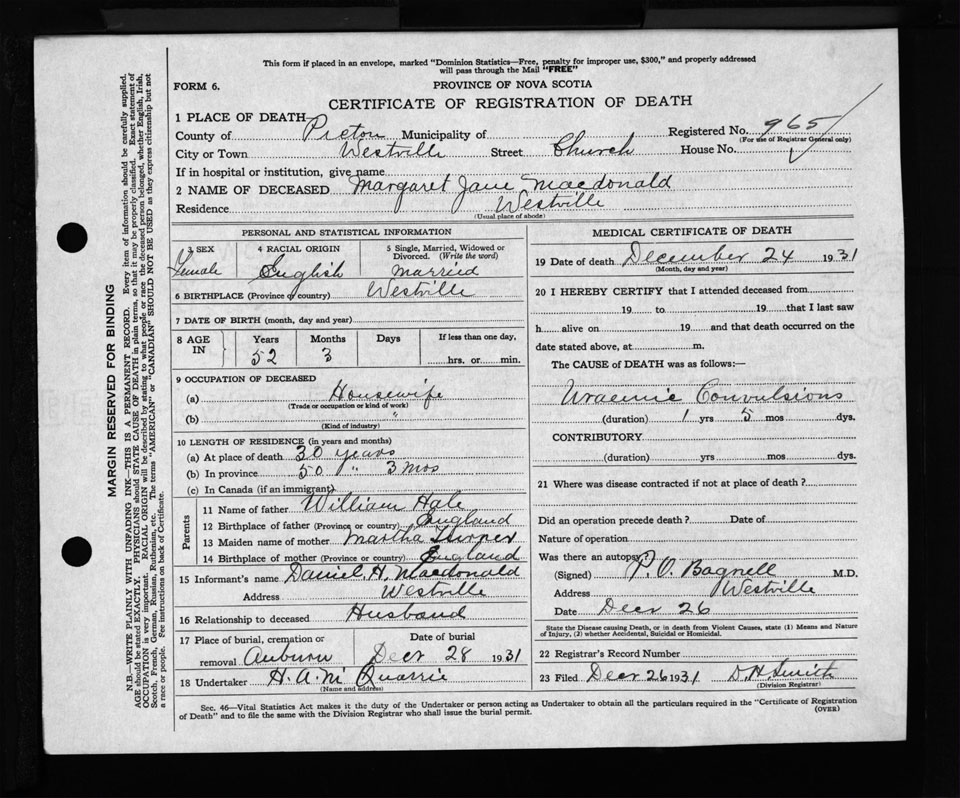 This form if placed in an envelope, marked "Dominion Statistics—Free, penalty for improper use, $300," and properly addressed
will pass through the Mail "FREE"
FORM 6.
PROVINCE OF NOVA SCOTIA
CERTIFICATE OF REGISTRATION OF DEATH
1 PLACE OF DEATH
County of Pictou Municipality of Registered No. 965
(For use of Registrar General only)
City or Town Westville Street Church House No.
If in hospital or institution, give name
2 NAME OF DECEASED Margaret Jane Macdonald
Residence Westville
(Usual place of abode)
PERSONAL AND STATISTICAL INFORMATION
3 SEX 4 RACIAL ORIGIN 5 Single, Married, Widowed or
Divorced. (Write the word)
Female English married
6 BIRTHPLACE (Province or country) Westville
7 DATE OF BIRTH (month, day and year)
8 AGE IN Years Months Days If less than one day,
52 3 hrs. or min.
9 OCCUPATION OF DECEASED
(a) Housewife
(Trade or occupation or kind of work)
(b) "
(Kind of industry)
10 LENGTH OF RESIDENCE (in years and months)
(a) At place of death 30 years
(b) In province 50 " 3 mos
(c) In Canada (if an immigrant)
Parents
11 Name of father William Hale
12 Birthplace of father (Province or country) England
13 Maiden name of mother Martha
14 Birthplace of mother (Province or country) England
15 Informant's name Daniel H. Macdonald
Address Westville
16 Relationship to deceased Husband
17 Place of burial, cremation or Date of burial
removal Auburn Decr 28 1931
18 Undertaker H. A. Mc Quarrie
(Name and address)
MEDICAL CERTIFICATE OF DEATH
19 Date of death December 24 1931
(Month, day and year)
20 I HEREBY CERTIFY that I attended deceased from
19 to 19 that I last saw
h alive on 19 and that death occurred on the
date stated above, at m.
The CAUSE of DEATH was as follows:—
Uraemic Convulsions
(duration) 1 yrs 5 mos dys.
CONTRIBUTORY
(duration) yrs mos dys.
21 Where was disease contracted if not at place of death?
Did an operation precede death? Date of
Nature of operation
Was there an autopsy?
(Signed) P. O. Bagnell M.D.
Address Westville
Date Decr 26
State the Disease causing Death, or in death from Violent Causes, state (1) Means and Nature
of Injury, (2) whether Accidental, Suicidal or Homicidal.
22 Registrar's Record Number
23 Filed Decr 26 1931 D H Smith
(Division Registrar)
Sec. 46—Vital Statistics Act makes it the duty of the Undertaker or person acting as Undertaker to obtain all the particulars required in the "Certificate of Registration
of Death" and to file the same with the Division Registrar who shall issue the burial permit.
(OVER)
MARGIN RESERVED FOR BINDING
N.B.—WRITE PLAINLY WITH UNFADING INK—THIS IS A PERMANENT RECORD. Every item of information should be carefully supplied.
AGE should be stated EXACTLY. PHYSICIANS should STATE CAUSE OF DEATH in plain terms, so that it may be properly classified. Exact statement of
OCCUPATION is very important. RACIAL ORIGIN will be described by stating to what people or race the deceased person belonged, whether English, Irish,
Scotch, French, German, Russian, Ruthenian, etc. The terms "AMERICAN" or "CANADIAN" SHOULD NOT BE USED as they express citizenship but not
a race or people. See instructions on back of Certificate.